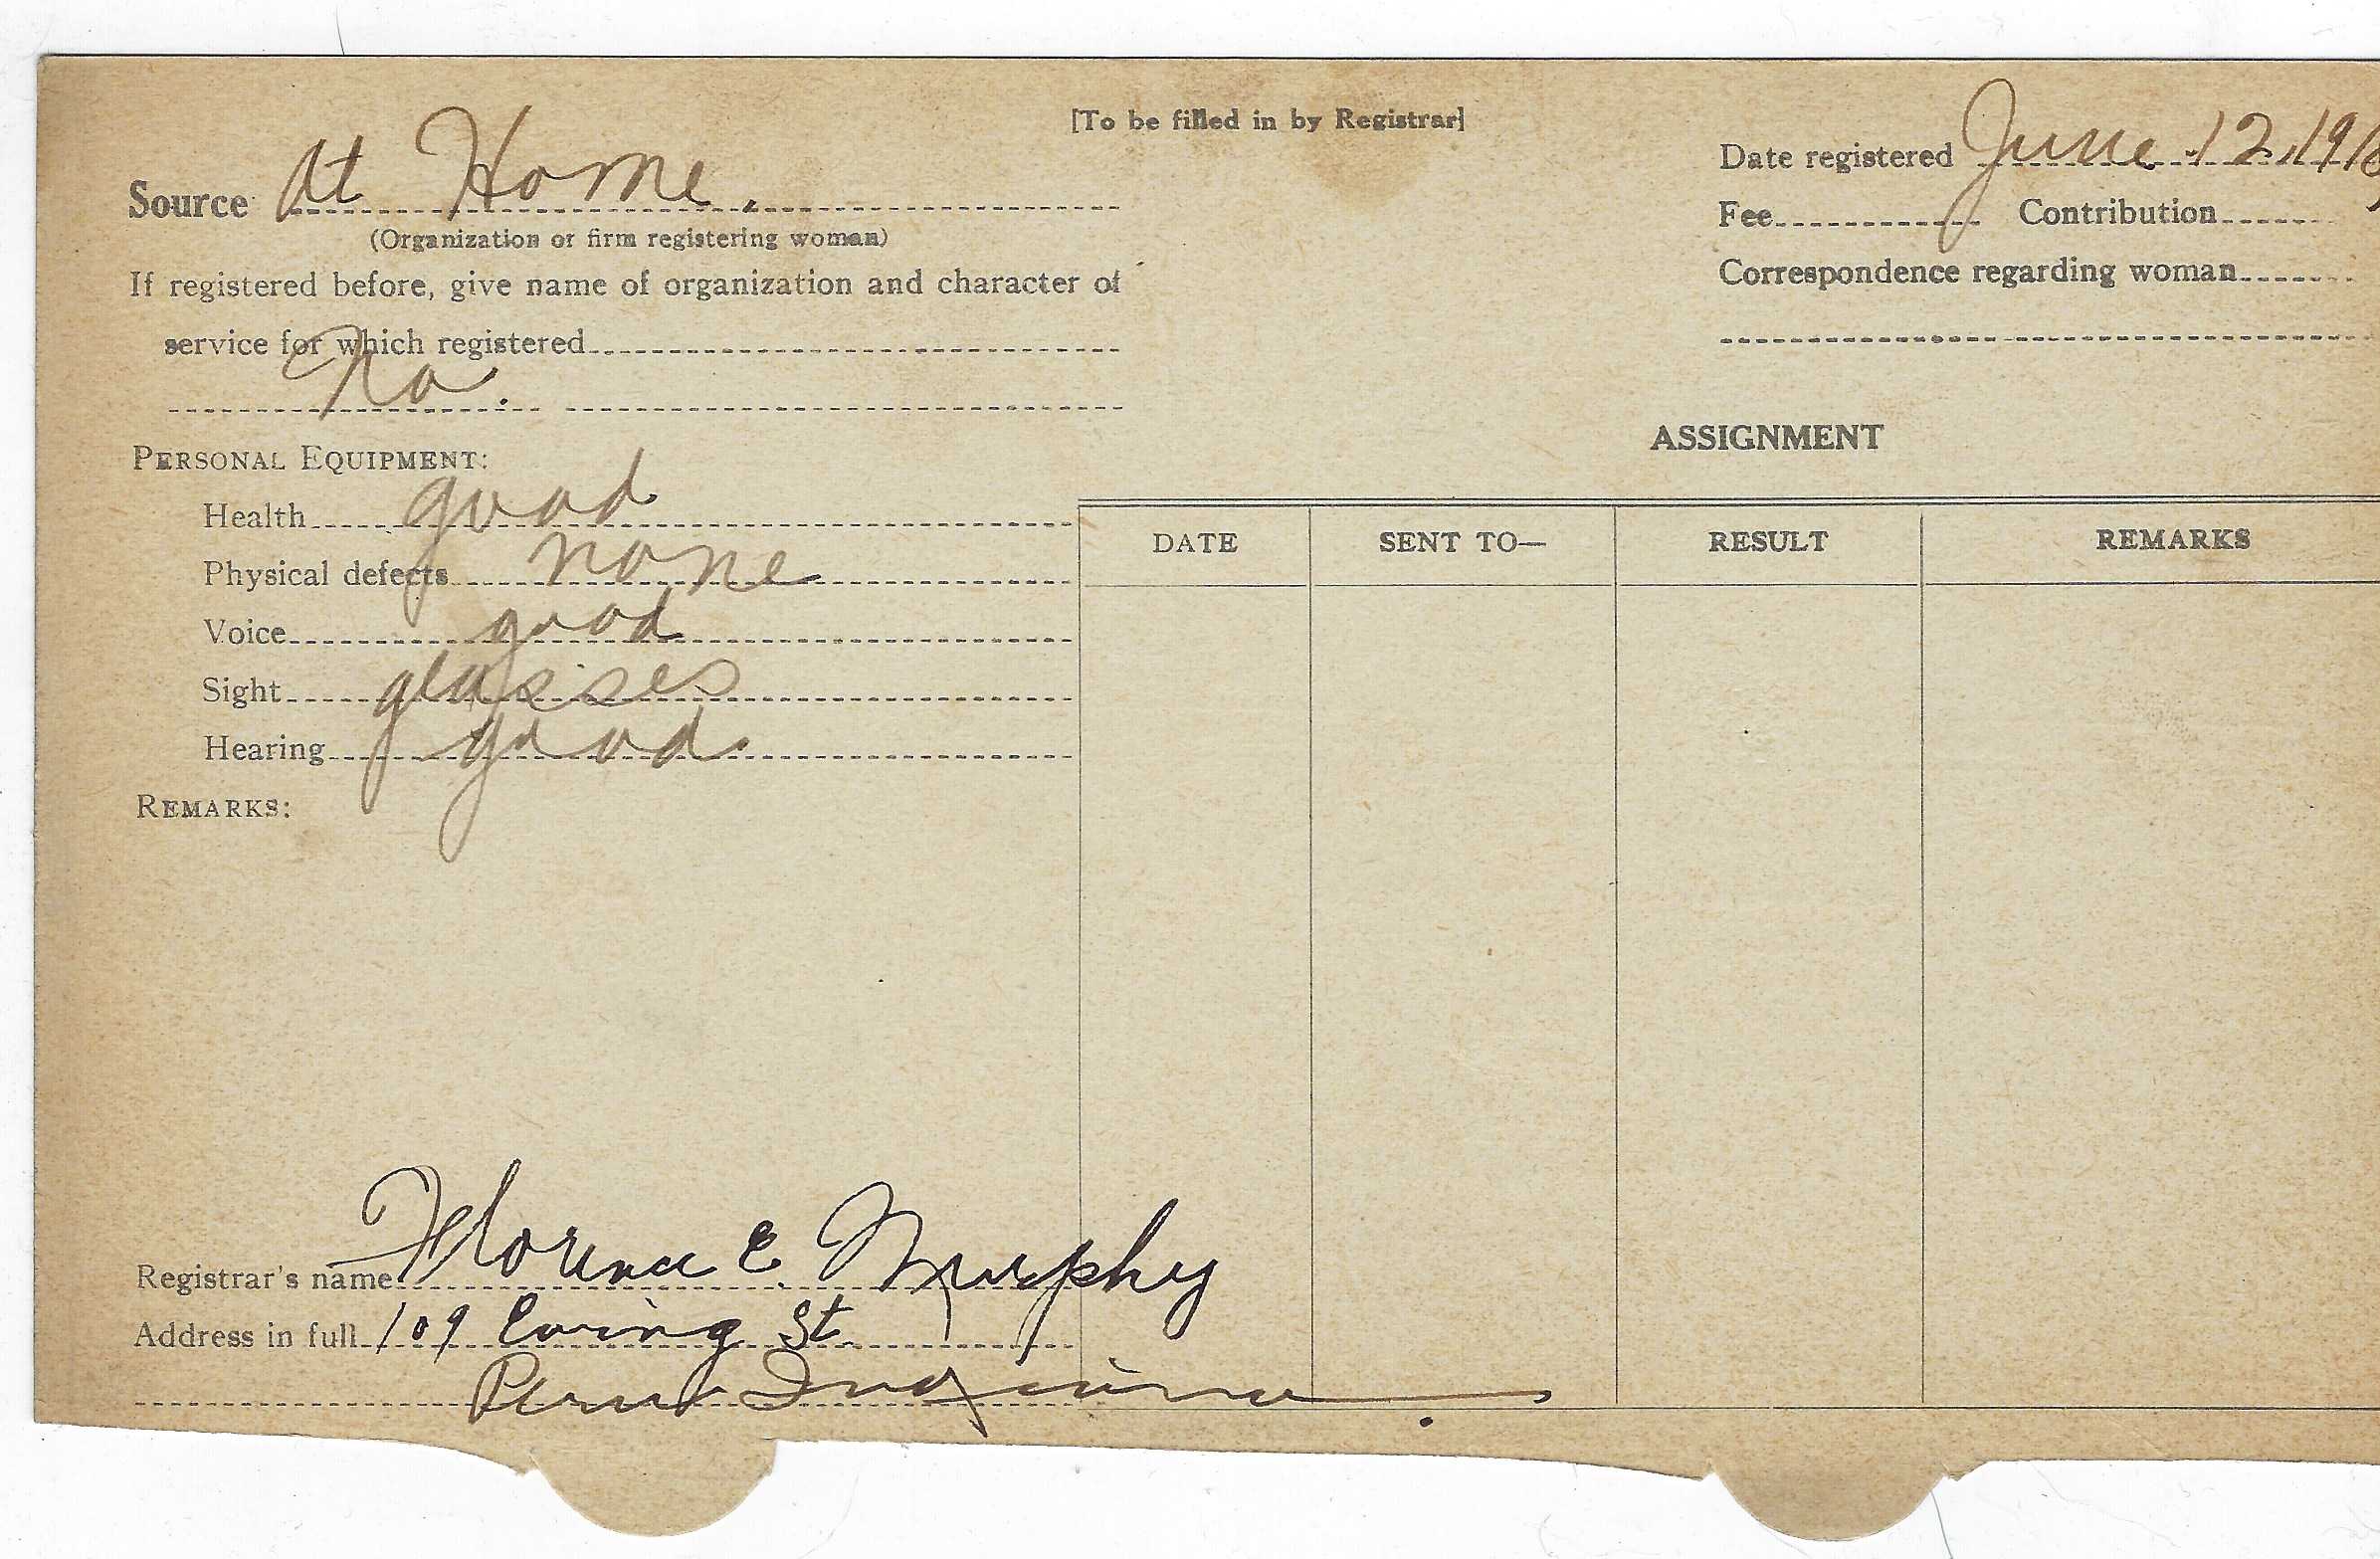 [To be filled in by Registrar]
Source At Home.
(Organization or firm registering woman)
If registered before, give name of organization and character of
service for which registered
No.
Date registered June 12, 191
Fee Contribution
Correspondence regarding woman
PERSONAL EQUIPMENT:
Health good
Physical defects none
Voice good
Sight glasses
Hearing good.
REMARKS:
ASSIGNMENT
DATE SENT TO— RESULT REMARKS
Registrar's name Florence E. Murphy
Address in full 109 Ewing St.
Peru Indiana.